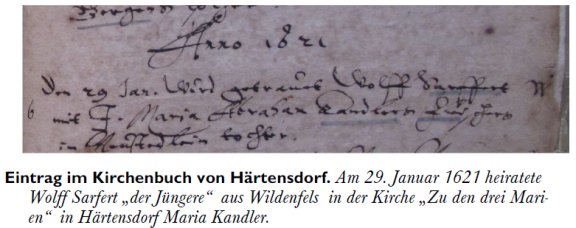 Anno 1621
Den 29 Jan. Wird getrauet Wolff Sarffert
6 mit J. Maria Abraham Kandlers
in Neustedtlein tochter.
Eintrag im Kirchenbuch von Härtensdorf. Am 29. Januar 1621 heiratete
Wolff Sarfert „der Jüngere“ aus Wildenfels in der Kirche „Zu den drei Mari-
en“ in Härtensdorf Maria Kandler.